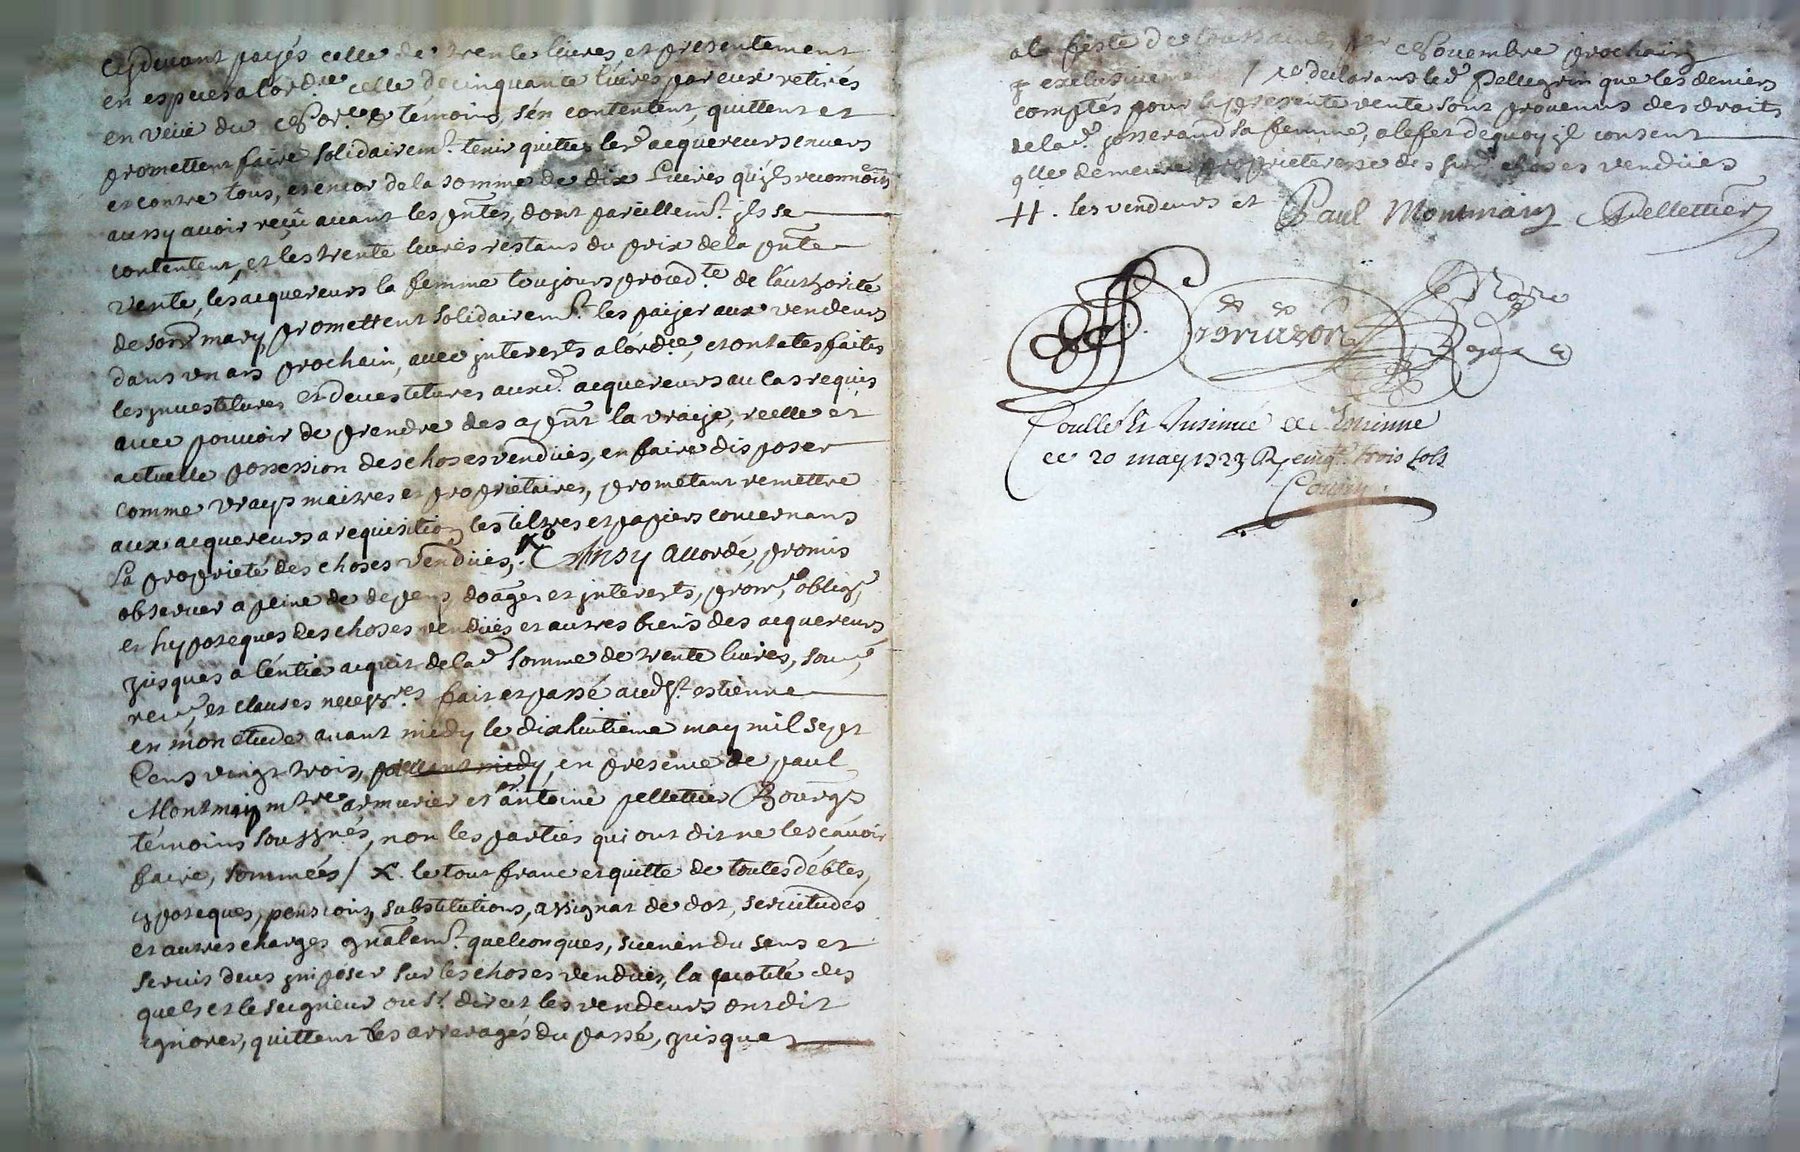 cydevant payés celle de trente livres et presentement
en especes a lord.re celle de cinquante livres par eux retirés
en veüe du Nor.e & temoins, s'en contentent, quittent et
promettent faire solidairem.t tenir quittes les d. acquereurs envers
et contre tous, et encor de la somme de dix Livres qu'ils reconnoiss.t
aussy avoir reçu avant les pntes, dont pareillem.t ils se
contentent, et les trente livres restans du prix de la pnte
vente, les acquereurs la femme toujours proced.te de l'authorité
de son mary, promettent solidairem.t les paijer aux vendeurs
dans un an prochain, avec interests a lord.re, et ont etes faites
les investitures et devestitures aux d. acquereurs au cas requis
avec pouvoir de prendre des a pnt la vraije, reelle et
actuelle possession des choses vendües, en faire disposer
comme vrays maitres et proprietaires, prometant remettre
aux acquereurs a requisition les tiltres et papiers concernans
La proprieté des choses vendües, X Ainsy accordé, promis
observer a peine de depens, doages et interests, prom., oblig.,
et hypoteques des choses vendües et autres biens des acquereurs
jusques a l'entier acquit de la d. somme de trente livres, soum.,
ren., et clauses necess.res fait et passé aud. St estienne
en mon etude avant midy le dixhuitieme may mil sept
Cens vingt trois, en presence de paul
Montmain m.tre armurier et s.r antoine pelletier Bourgs
témoins soussnés, non les parties qui ont dit ne le scavoir
faire, sommées / X. le tout franc et quitte de toutes debtes,
ypoteques, pensions, substitutions, assignat de dot, servitudes
et autres charges gnalem.t quelconques, suivier du sens et
servis deus imposer sur les choses vendües, la quotité des
quels et le seigneur ou s.r direct les vendeurs ont dit
ignorer, quittent les arrerages du passé, jusques
a la feste de toussaints Novembre prochain
exclusivement / declarans led. Pellegrin que les deniers
comptés pour la presente vente sont provenus des droits
de la d. josserand sa femme, a l'efet de quoy jl consent
qlle demeure proprieteresse des sus d. choses vendües
H. les vendeurs et Paul Montmain APellettier
Brriazon Nore
Royal
Coullé Et Insinué a St Estienne
ce 20 may 1723 R vingt trois sols